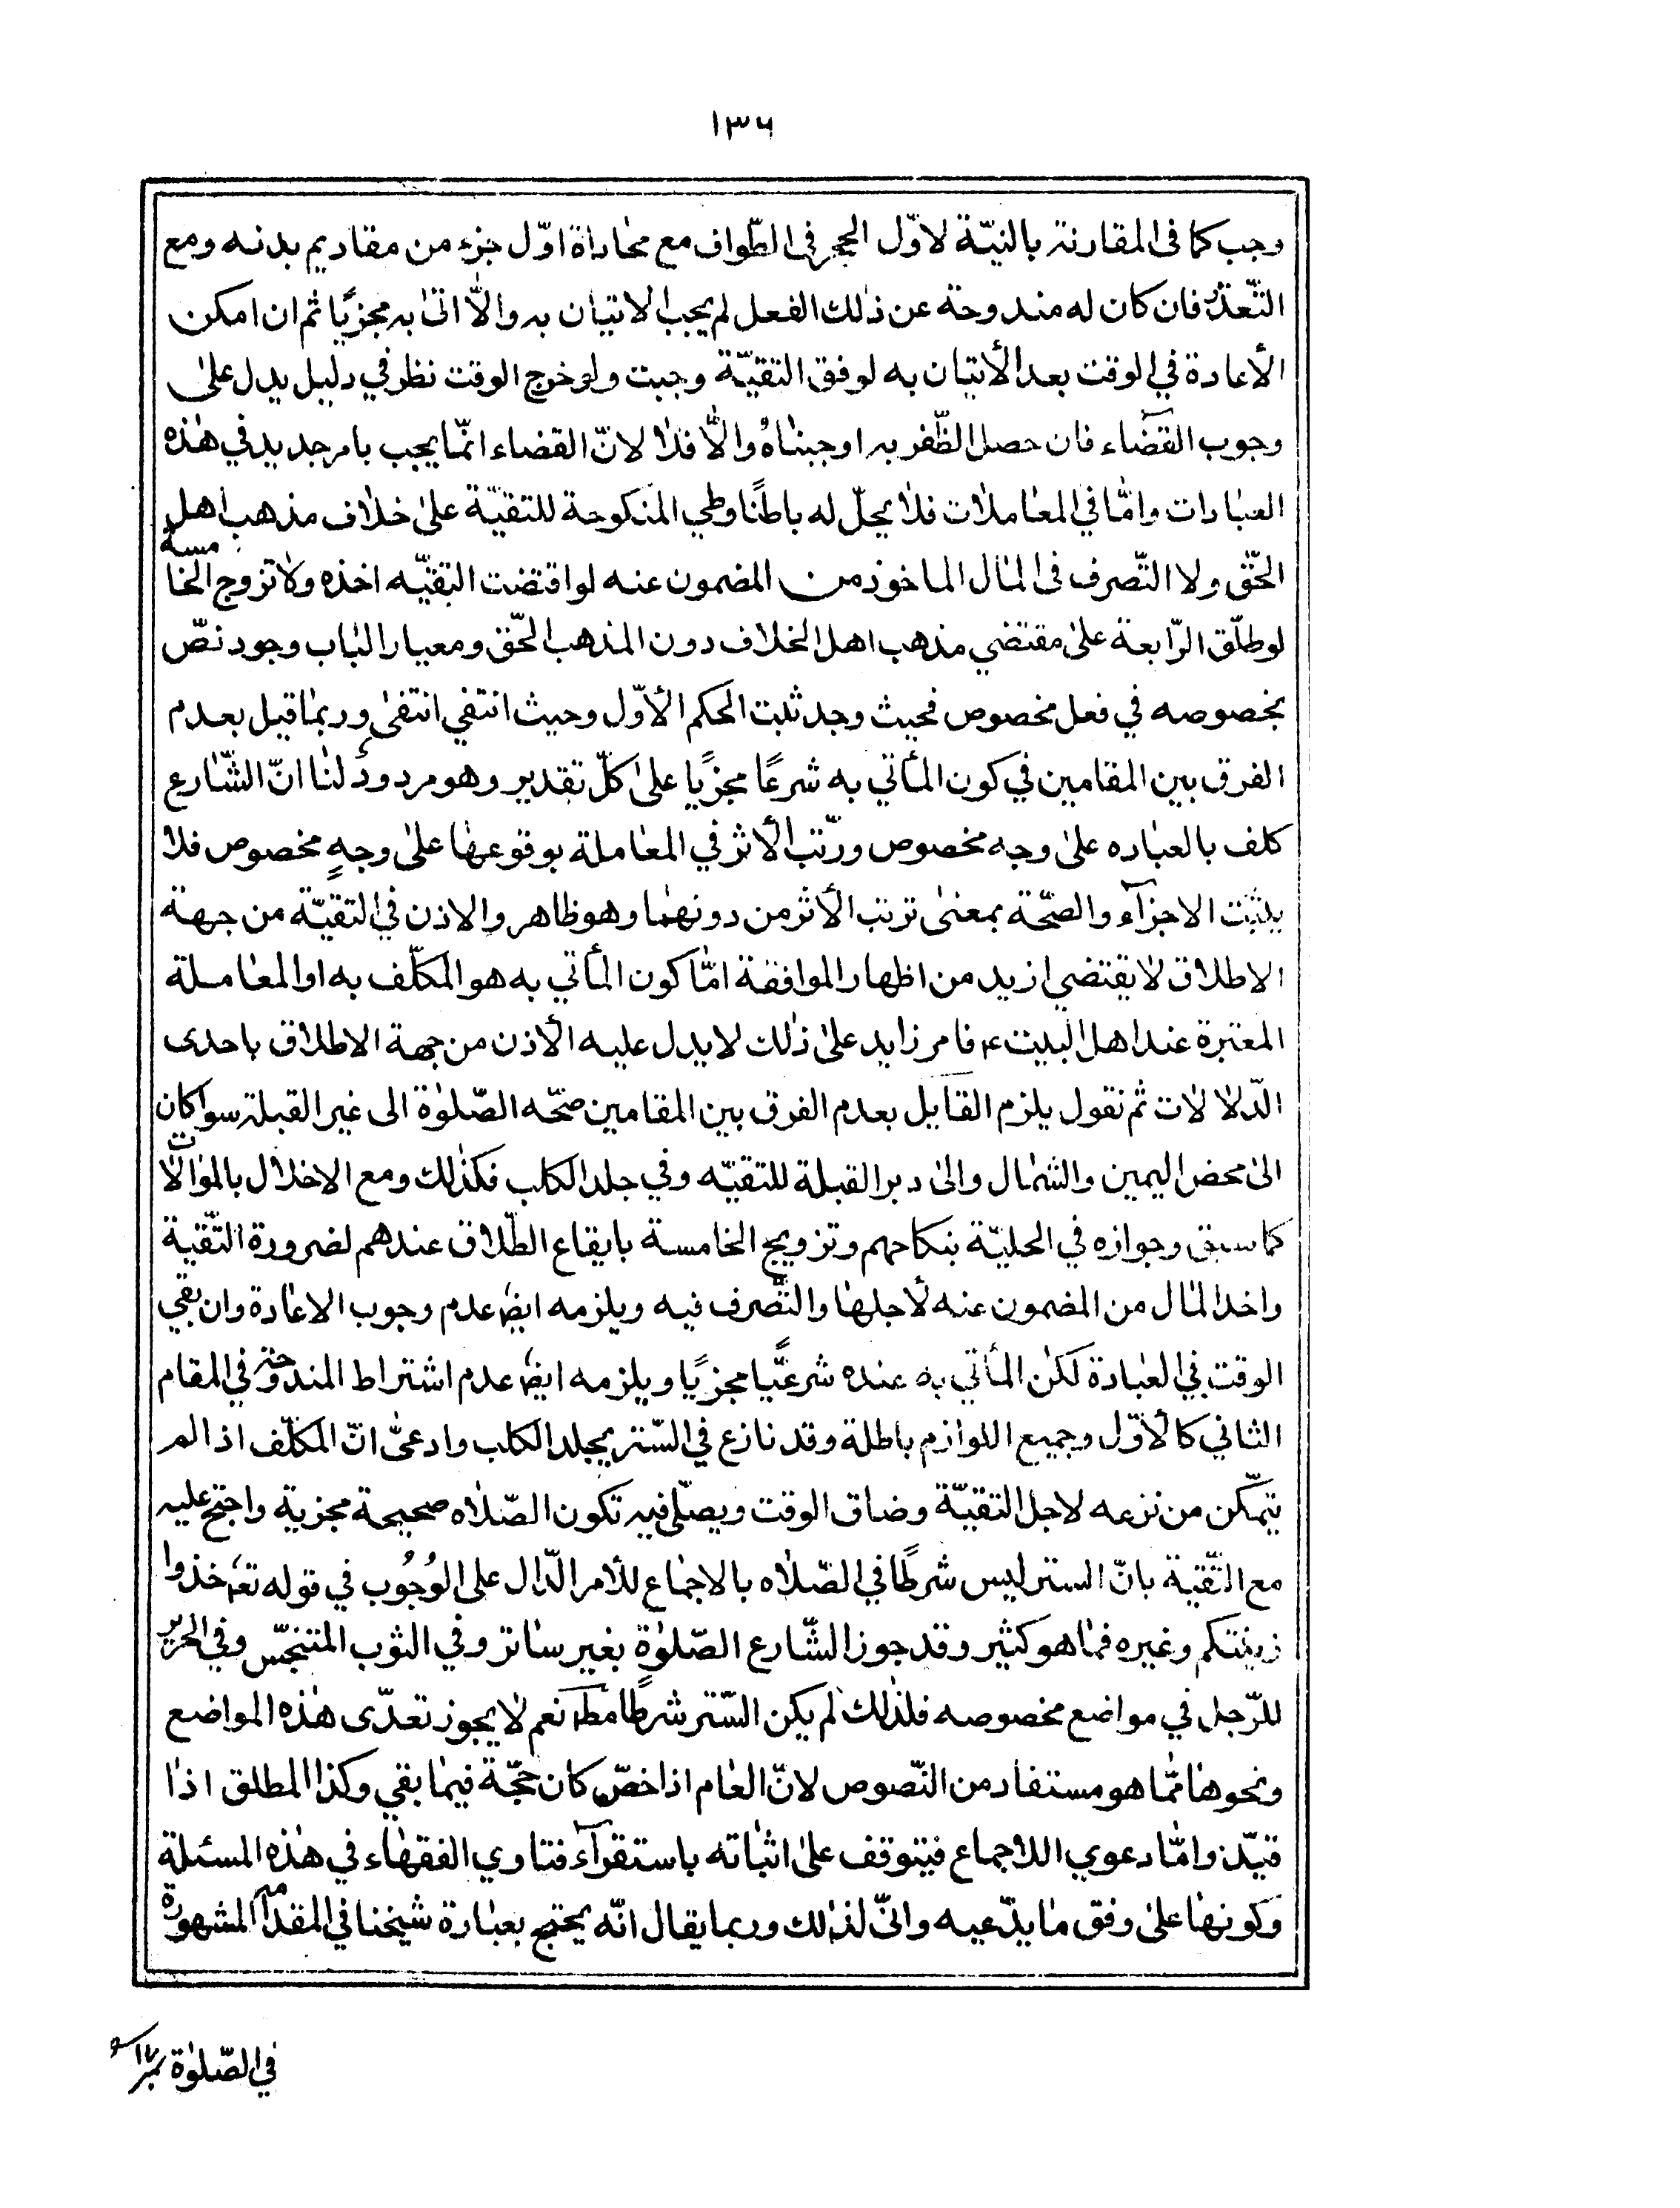 ١٣٦
وجب كما فى المقارنة بالنيّة لاوّل الحجر فى الطّواف مع محاذاة اوّل جزء من مقاديم بدنه ومع
التّعذّر فان كان له مندوحة عن ذٰلك الفعل لم يجب الاتيان به والاّ اتىٰ به مجزيًا ثم ان امكن
الأعادة في الوقت بعد الأتيان به لوفق التقيّة وجبت ولو خرج الوقت نظر في دليل يدل علىٰ
وجوب القضٓاء فان حصل الظّفر به اوجبناهُ والاّ فلا لانّ القضاء انمّا يجب بامر جديد في هٰذه
العبادات وامّا في المعاملات فلا يحلّ له باطنًا وطي المنكوحة للتقيّة علىٰ خلاف مذهب اهل
الحّق ولا التّصرف فى المال الماخوذ من المضمون عنه لو اقتضت التقيّه اخذه ولا تزوج الخامسة
لو طلّق الرّابعة علىٰ مقتضي مذهب اهل الخلاف دون المذهب الحّق ومعيار الباب وجود نصّ
بخصوصه في فعل مخصوص فحيث وجد ثبت الحكم الأوّل وحيث انتفي انتفىٰ وربما قيل بعدم
الفرق بين المقامين في كون المأتي به شرعًا مجزيًا علىٰ كلّ تقدير وهو مردودٌ لنا انّ الشّارع
كلف بالعباده علىٰ وجه مخصوص ورتّب الأثر في المعاملة بوقوعها علىٰ وجهٍ مخصوص فلا
يثبت الاجزآء والصّحّة بمعنىٰ ترتب الأثر من دونهما وهو ظاهر والاذن في التقيّة من جهة
الاطلاق لا يقتضي ازيد من اظهار الموافقة امّا كون المأتي به هو المكلّف به او المعاملة
المعتبرة عند اهل البيت ع فامر زايد علىٰ ذٰلك لا يدل عليه الأذن من جهة الاطلاق باحدى
الدّلالات ثم نقول يلزم القايل بعدم الفرق بين المقامين صحّه الصّلوٰة الى غير القبلة سوآ كان
الىٰ محض اليمين والشمال والىٰ دبر القبلة للتقيّه وفي جلد الكلب فكذٰلك ومع الاخلال بالموالات
كما سبق وجوازه في الحليّة بنكاحهم وتزويج الخامسة بايقاع الطّلاق عندهم لضرورة التّقية
واخذ المال من المضمون عنه لأجلها والتّصرف فيه ويلزمه ايضً عدم وجوب الاعادة وان بقي
الوقت في العبادة لكن المأتي به عنده شرعيًّا مجزيًا ويلزمه ايضً عدم اشتراط المندوحة في المقام
الثاني كالأوّل وجميع اللوازم باطلة وقد نازع في السّتر بجلد الكلب وادعىّ انّ المكلّف اذا لم
يتمكّن من نزعه لاجل التقيّة وضاق الوقت ويصلّى فيه تكون الصّلاه صحيحة مجزية واحتج عليه
مع التّقية بانّ الستر ليس شرطًا في الصّلاه بالاجماع للأمر الدّال على الوُجُوب في قوله تعٰه خذوا
زينتكم وغيره فما هو كثير وقد جوز الشّارع الصّلوٰة بغير ساتر وفي الثوب المتنجّس وفي الحرير
للرّجل في مواضع مخصوصه فلذٰلك لم يكن السّتر شرطًا مطه نعم لا يجوز تعدّى هٰذه المواضع
ونحوها ممّا هو مستفاد من النّصوص لانّ العام اذا خصّ كان حجّة فيما بقي وكذا المطلق اذا
قيّد وامّا دعوي اللاجماع فيتوقف علىٰ اثباته باستقرآء فتاوي الفقهاء في هٰذه المسئلة
وكونها علىٰ وفق ما يدّعيه وانّي لذٰلك وربما يقال انّه يحتج بعبارة شيخنا في المقدمة المشهورة
في الصّلوٰة